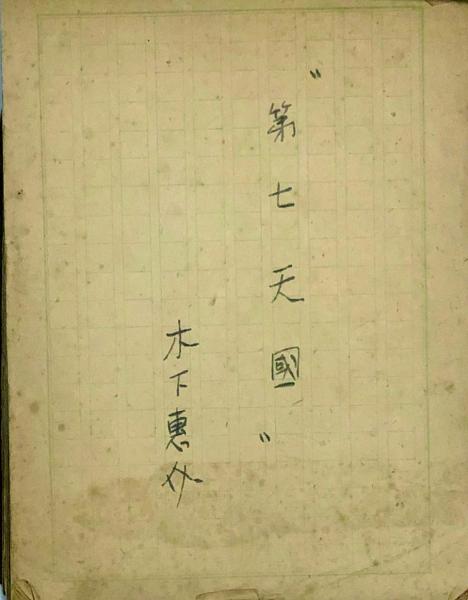 〝第七天國〟
木下惠介